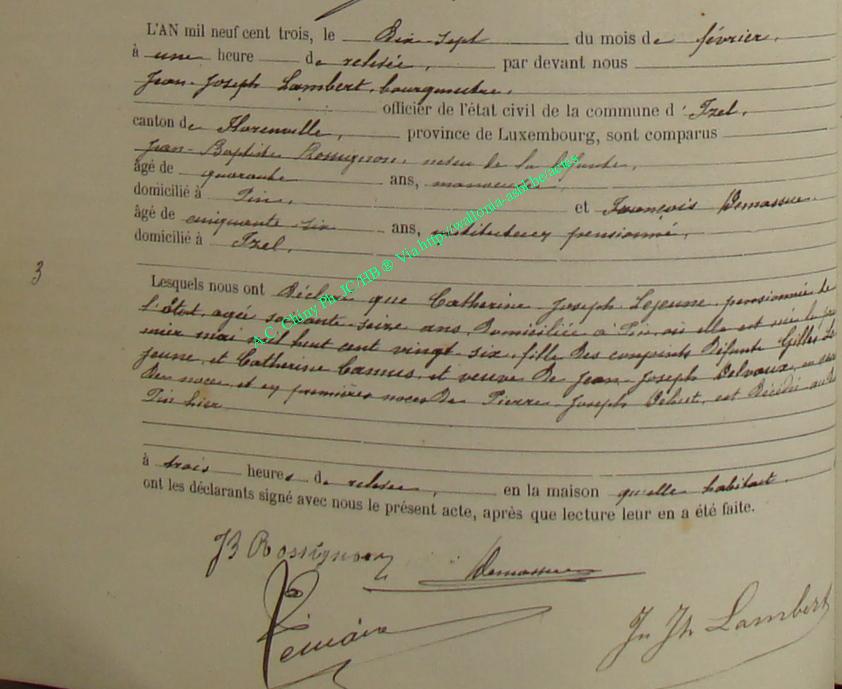 L'AN mil neuf cent trois, le Dix-sept du mois de février,
à une heure de relevée, par devant nous
Jean-Joseph Lambert, bourgmestre,
officier de l'état civil de la commune d'Izel,
canton de Florenville, province de Luxembourg, sont comparus
Jean-Baptiste Rossignon, neveu de la défunte,
âgé de quarante ans, manoeuvre,
domicilié à Pin, et François Demasure
âgé de cinquante six ans, instituteur pensionné,
domicilié à Izel,
3
Lesquels nous ont Déclaré que Catherine-Joseph Lejeune, pensionnée de
l'état, agée soixante-seize ans, Domiciliée à Pin, où elle est née le pre
mier mai mil huit cent vingt-six, fille des conjoints Défunts Gilles Le
jeune, et Catherine Camus, et veuve De Jean-Joseph Delvaux, en
Des noces, et en premières noces De Pierre-Joseph est Décédée au Dit
Pin hier
à trois heures de relevée, en la maison qu'elle habitait.
ont les déclarants signé avec nous le présent acte, après que lecture leur en a été faite.
JB Rossignon
Demasure
Jn Jh Lambert
A.C. Chiny Ph. JC/HB ® Via http://wallonia-asbl.be/actes